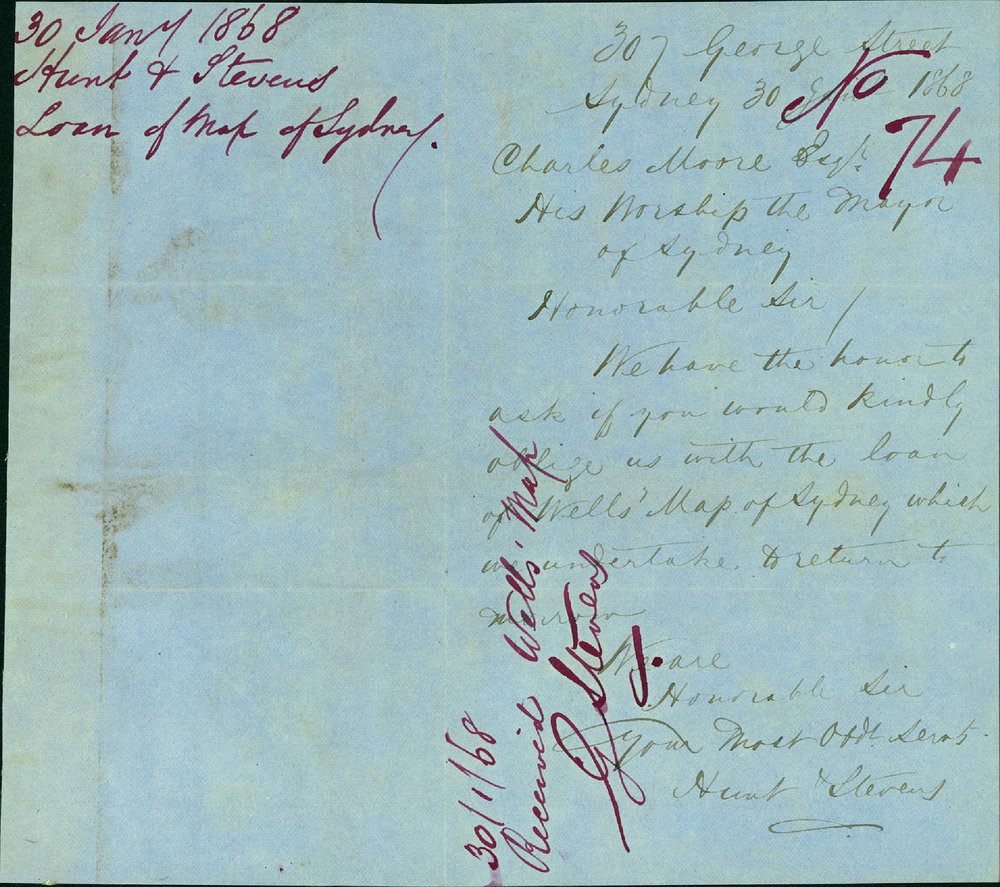 30 Jany 1868
Hunt & Stevens
Loan of Map of Sydney.
No
74
307 George Street
Sydney 30 1868
Charles Moore Esqr.
His Worship the Mayor
of Sydney
Honorable Sir /
We have the honor to
ask if you would kindly
oblige us with the loan
of Wells' Map of Sydney which
we undertake to return to
morrow
We are
Honorable Sir
Your Most Obdt. Servts.
Hunt & Stevens
30/1/68
Received Wells' Map
G Stevens